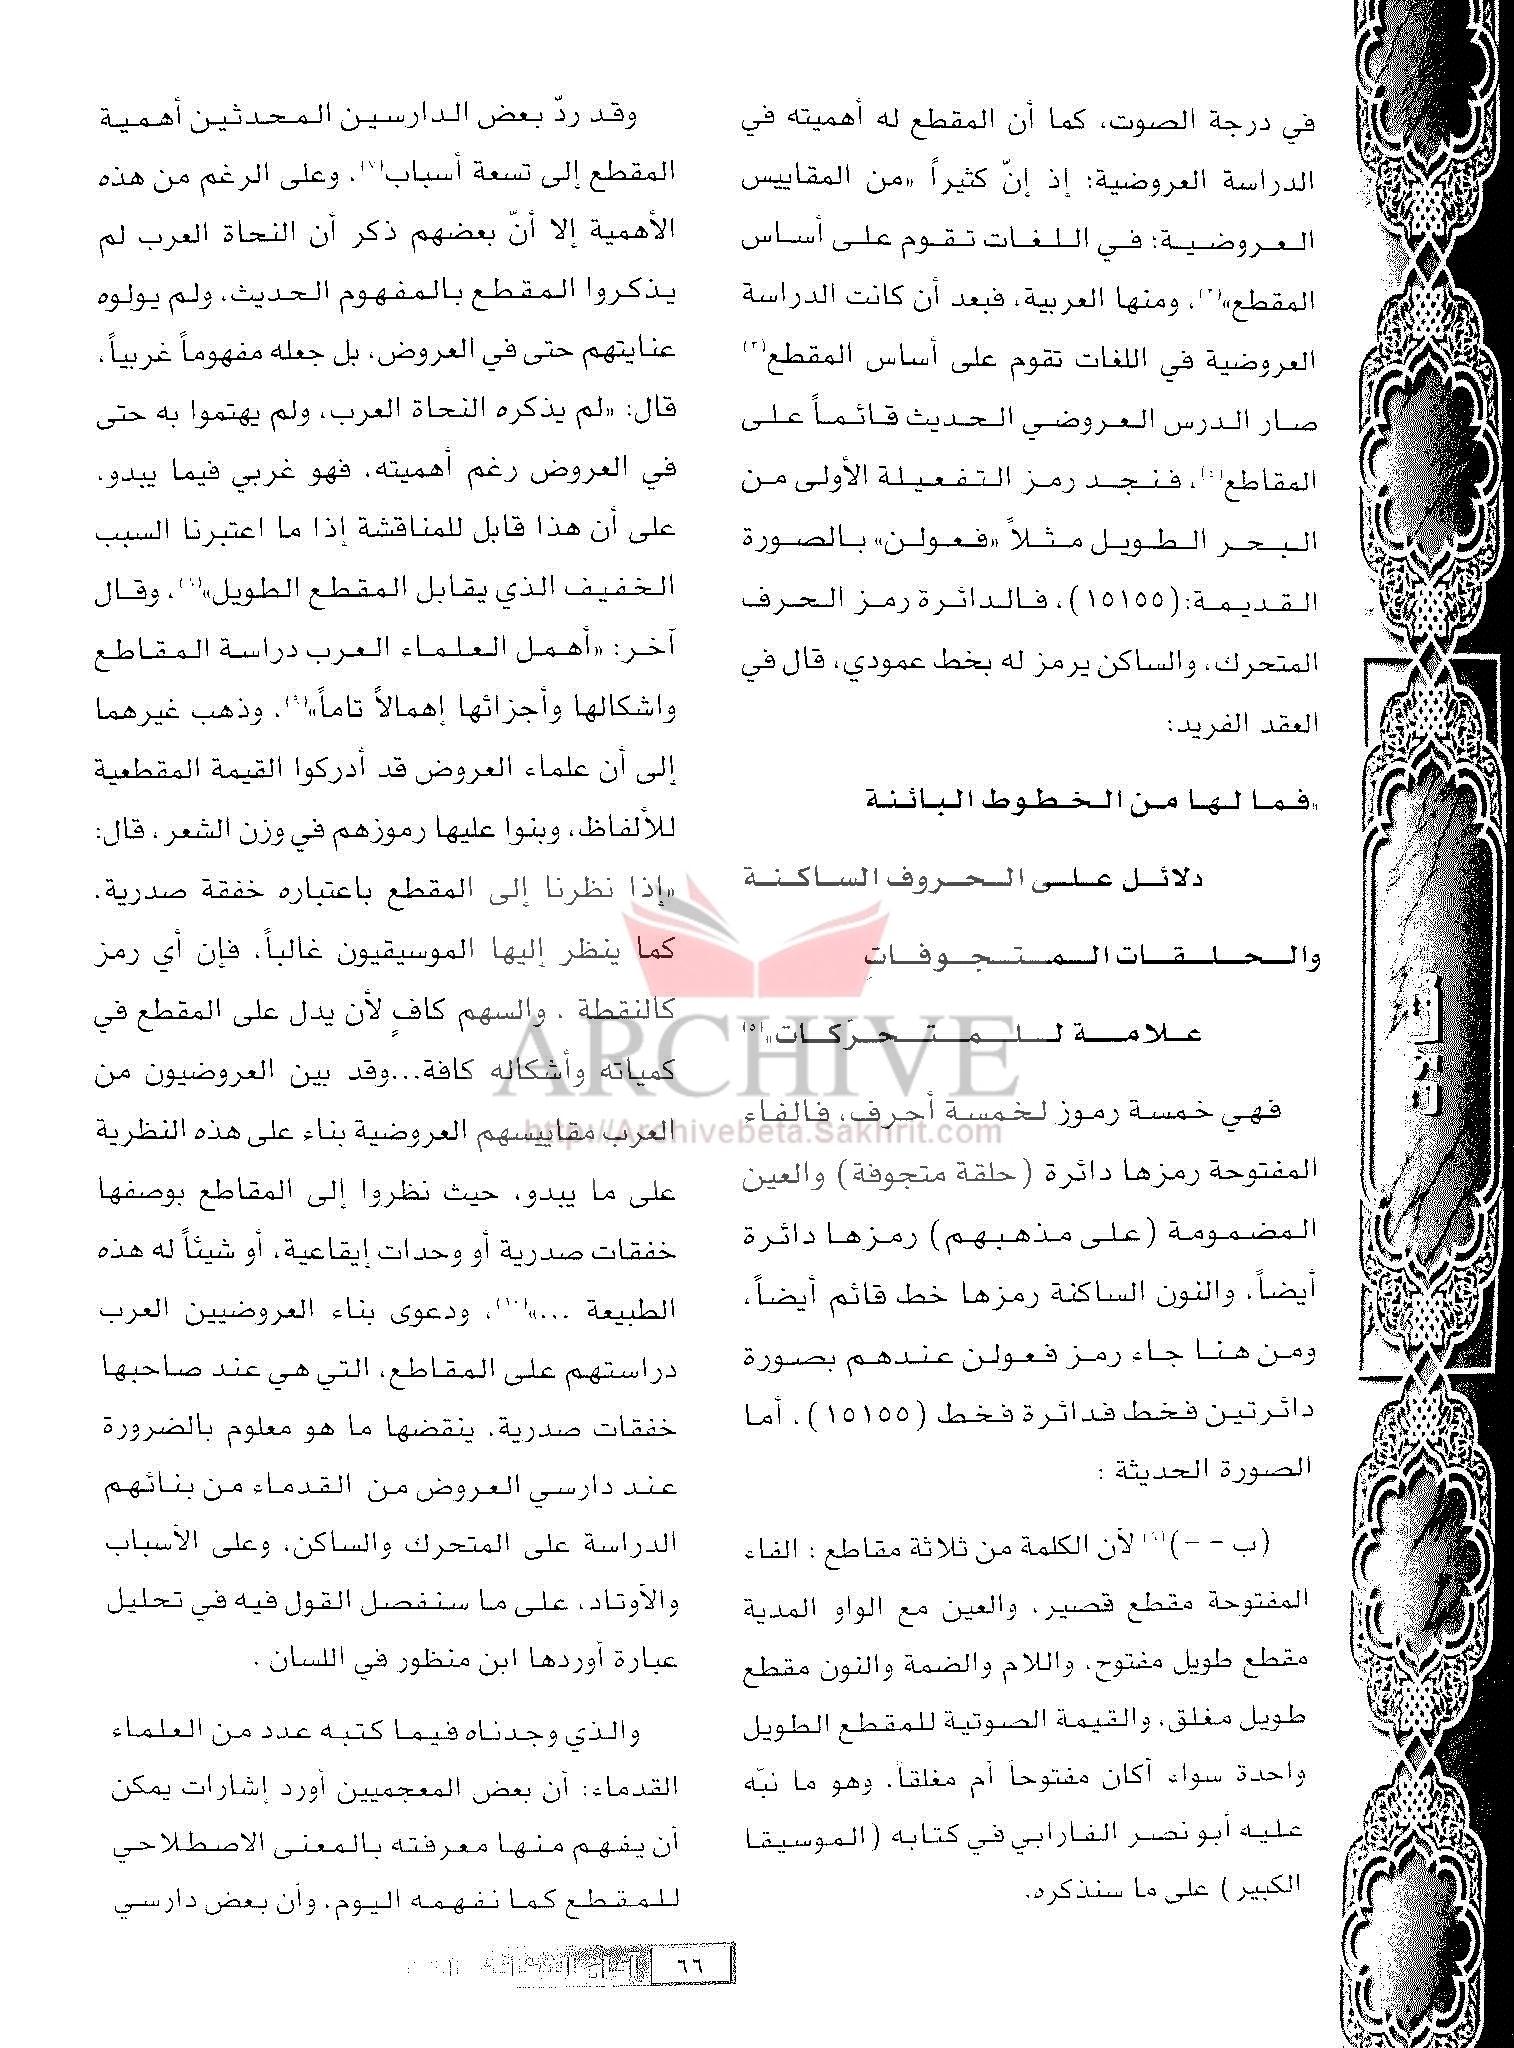 في درجة الصوت، كما أن المقطع له أهميته في
الدراسة العروضية: إذ إنّ كثيراً «من المقاييس
العروضية: في اللغات تقوم على أساس
المقطع»(٢)، ومنها العربية، فبعد أن كانت الدراسة
العروضية في اللغات تقوم على أساس المقطع(٣)
صار الدرس العروضي الحديث قائماً على
المقاطع(٤)، فنجد رمز التفعيلة الأولى من
البحر الطويل مثلاً «فعولن» بالصورة
القديمة:(١٥١٥٥)، فالدائرة رمز الحرف
المتحرك، والساكن يرمز له بخط عمودي، قال في
العقد الفريد:
«فما لها من الخطوط البائنة
دلائل على الحروف الساكنة
والحلقات المتجوفاتِ
علامة للمتحرّكات»(٥)
فهي خمسة رموز لخمسة أحرف، فالفاء
المفتوحة رمزها دائرة (حلقة متجوفة) والعين
المضمومة (على مذهبهم) رمزها دائرة
أيضاً، والنون الساكنة رمزها خط قائم أيضاً،
ومن هنا جاء رمز فعولن عندهم بصورة
دائرتين فخط فدائرة فخط (١٥١٥٥)، أما
الصورة الحديثة :
(ب - -)(٦) لأن الكلمة من ثلاثة مقاطع : الفاء
المفتوحة مقطع قصير، والعين مع الواو المدية
مقطع طويل مفتوح، واللام والضمة والنون مقطع
طويل مغلق، والقيمة الصوتية للمقطع الطويل
واحدة سواء أكان مفتوحاً أم مغلقاً، وهو ما نبّه
عليه أبو نصر الفارابي في كتابه (الموسيقا
الكبير) على ما سنذكره.
وقد ردّ بعض الدارسين المحدثين أهمية
المقطع إلى تسعة أسباب(٧)، وعلى الرغم من هذه
الأهمية إلا أنّ بعضهم ذكر أن النحاة العرب لم
يذكروا المقطع بالمفهوم الحديث، ولم يولوه
عنايتهم حتى في العروض، بل جعله مفهوماً غربياً،
قال: «لم يذكره النحاة العرب، ولم يهتموا به حتى
في العروض رغم أهميته، فهو غربي فيما يبدو،
على أن هذا قابل للمناقشة إذا ما اعتبرنا السبب
الخفيف الذي يقابل المقطع الطويل»(٨)، وقال
آخر: «أهمل العلماء العرب دراسة المقاطع
واشكالها وأجزائها إهمالاً تاماً»(٩)، وذهب غيرهما
إلى أن علماء العروض قد أدركوا القيمة المقطعية
للألفاظ، وبنوا عليها رموزهم في وزن الشعر، قال:
«إذا نظرنا إلى المقطع باعتباره خفقة صدرية،
كما ينظر إليها الموسيقيون غالباً، فإن أي رمز
كالنقطة ، والسهم كافٍ لأن يدل على المقطع في
كمياته وأشكاله كافة...وقد بين العروضيون من
العرب مقاييسهم العروضية بناء على هذه النظرية
على ما يبدو، حيث نظروا إلى المقاطع بوصفها
خفقات صدرية أو وحدات إيقاعية، أو شيئاً له هذه
الطبيعة ...»(١٠)، ودعوى بناء العروضيين العرب
دراستهم على المقاطع، التي هي عند صاحبها
خفقات صدرية، ينقضها ما هو معلوم بالضرورة
عند دارسي العروض من القدماء من بنائهم
الدراسة على المتحرك والساكن، وعلى الأسباب
والأوتاد، على ما سنفصل القول فيه في تحليل
عبارة أوردها ابن منظور في اللسان .
والذي وجدناه فيما كتبه عدد من العلماء
القدماء: أن بعض المعجميين أورد إشارات يمكن
أن يفهم منها معرفته بالمعنى الاصطلاحي
للمقطع كما نفهمه اليوم، وأن بعض دارسي
ARCHIVE
http://Archivebeta.Sakhrit.com
٦٦